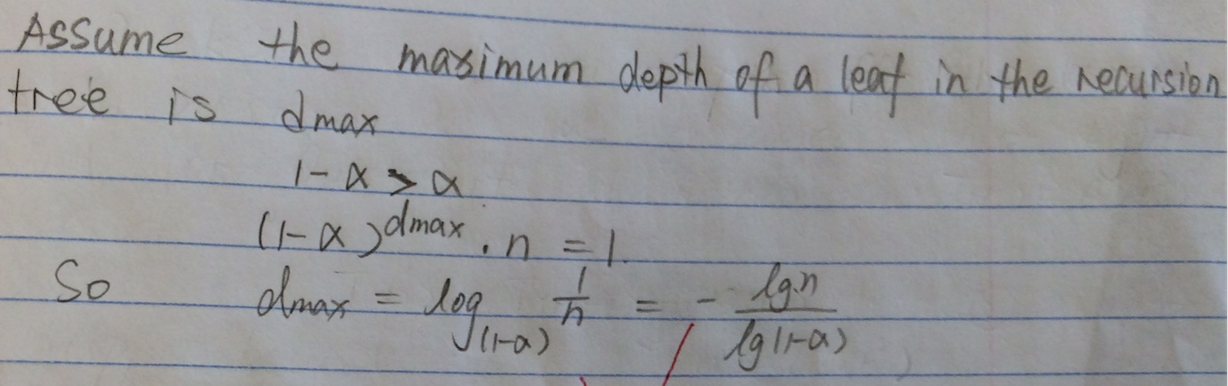 Assume the maximum depth of a leaf in the recursion
tree is dmax
1-α > α
(1-α)^dmax . n = 1.
So dmax = log_(1-α) 1/n = - lgn/lg(1-α)